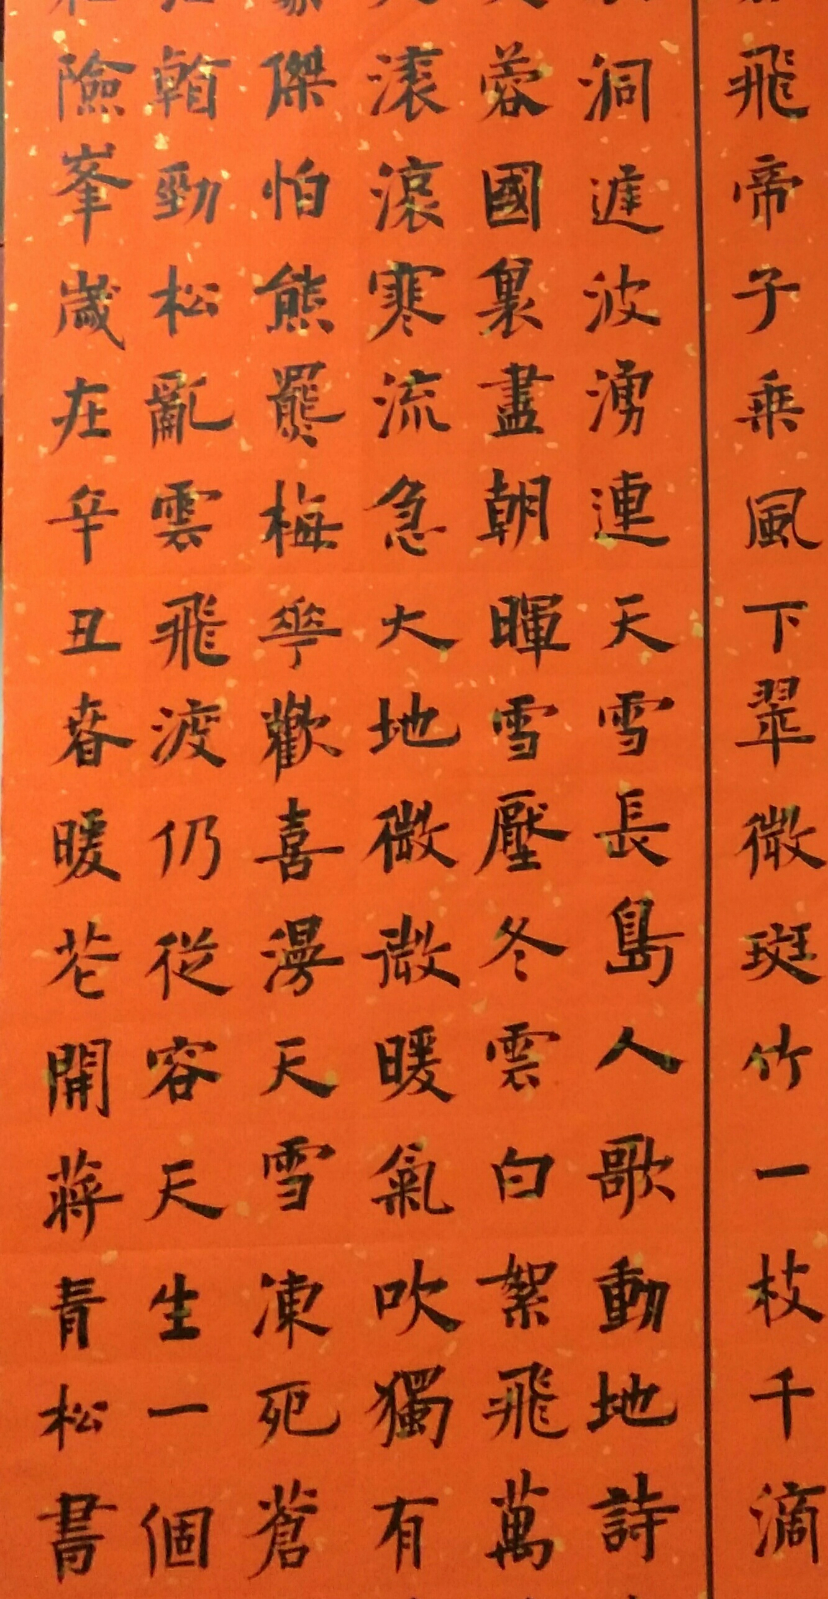 飛帝子乘風下翠微斑竹一枝千滴
洞庭波湧連天雪長島人歌動地詩
蓉國裏盡朝暉雪壓冬雲白絮飛萬
滾滾寒流急大地微微暖氣吹獨有
傑怕熊羆梅華歡喜漫天雪凍死蒼
看勁松亂雲飛渡仍從容天生一個
險峯歲在辛丑春暖花開蔣青松書